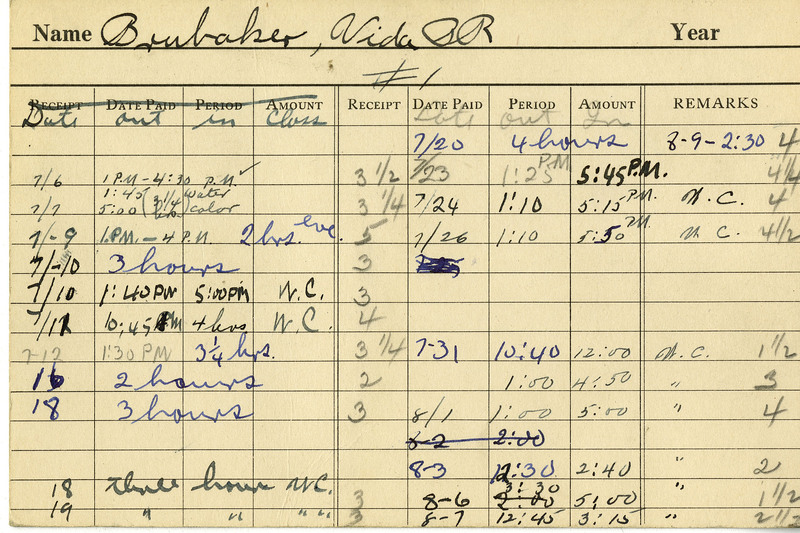 Name Brubaker, Vida BR Year
#1
RECEIPT DATE PAID PERIOD AMOUNT RECEIPT DATE PAID PERIOD AMOUNT REMARKS
Date out in Class Date out In
7/20 4 hours 8-9-2:30 4
7/6 1 P.M-4:30 P.M. 3 1/2 7/23 1:25 P.M 5:45 P.M. 4 1/4
7/7 1:45 5:00 (3 1/4 hrs.) water color 3 1/4 7/24 1:10 5:15 P.M. W.C. 4
7/-9 1 P.M.-4 P.M. 2 hrs. eve. 5 7/26 1:10 5:50 P.M. W.C. 4 1/2
7/-10 3 hours 3
7/10 1:40PM 5:00PM W.C. 3
7/12 10:45 4 hrs W.C. 4
7-12 1:30 PM 3 1/4 hrs. 3 1/4 7-31 10:40 12:00 W.C. 1 1/2
16 2 hours 2 1:00 4:50 " 3
18 3 hours 3 8/1 1:00 5:00 " 4
8-2 2:00
8-3 12:30 2:40 " 2
18 three hours W.C. 3 8-6 3:30 2:00 5:00 " 1 1/2
19 " " " " 3 8-7 12:45 3:15 " 2 1/2